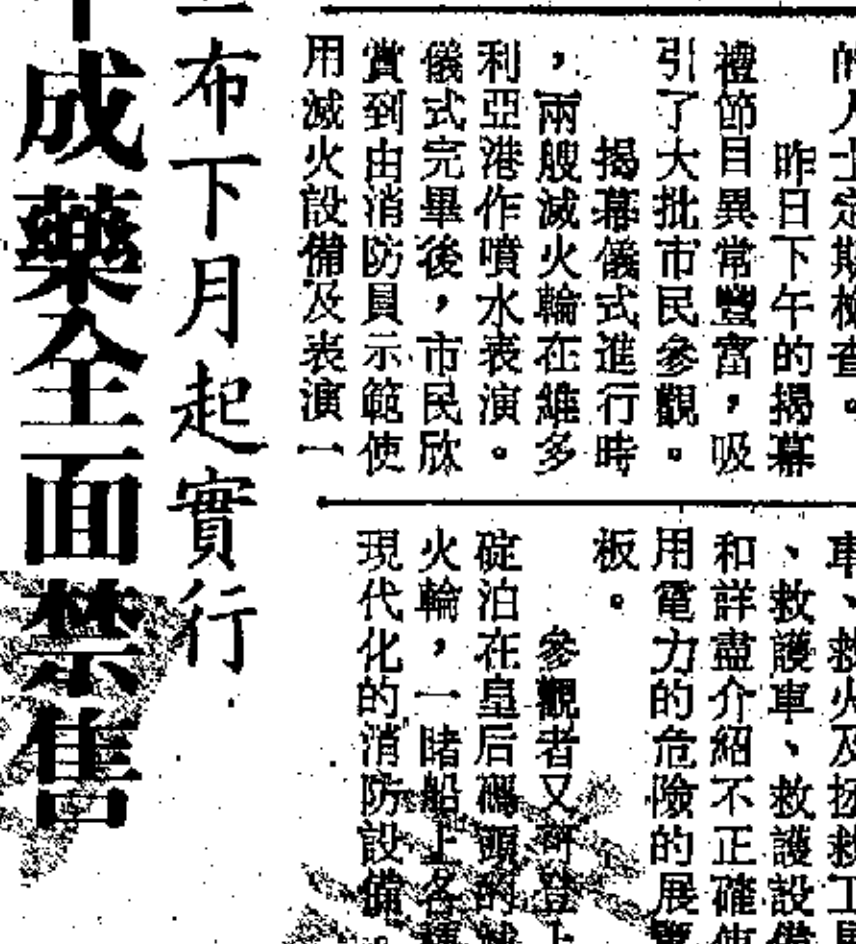 的人士定期檢查。
昨日下午的揭幕
禮節目異常豐富，吸
引了大批市民參觀。
揭幕儀式進行時
，兩艘滅火輪在維多
利亞港作噴水表演。
儀式完畢後，市民欣
賞到由消防員示範使
用滅火設備及表演一
車、救火及拯救工具
、救護車、救護設備
和詳盡介紹不正確使
用電力的危險的展覽
板。
參觀者又可登上
碇泊在皇后碼頭的滅
火輪，一睹船上各種
現代化的消防設備。
布下月起實行
成藥全面禁售